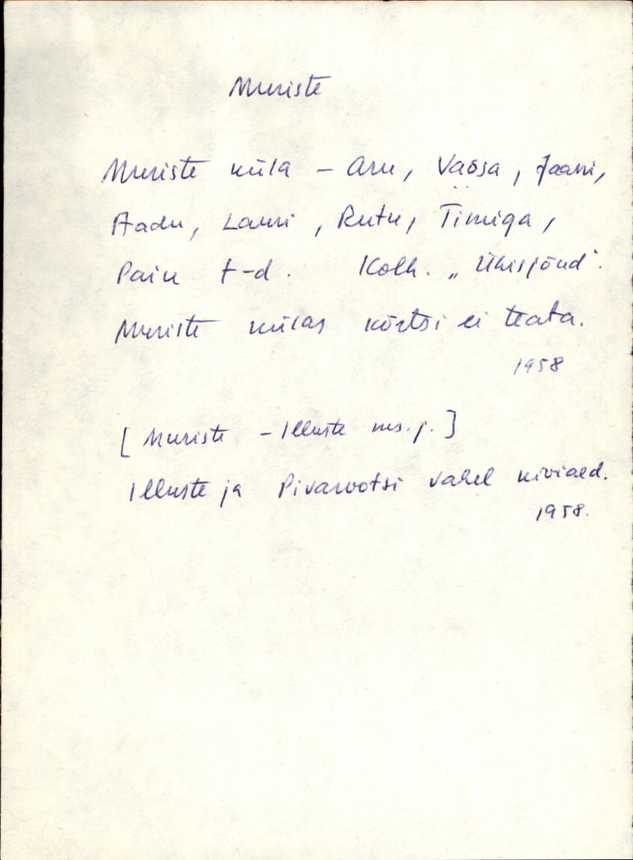 Muriste
Muriste küla – Aru, Vaŏsa, Jaani,
Aadu, Lauri, Rutu, Timiga,
Paiu t-d. Kolh. „Ühisjõud".
Muriste külas kõrtsi ei teata.
1958
[Muriste – Illuste ms. j.]
Illuste ja Pivarootsi vahel kiviaed.
1958.